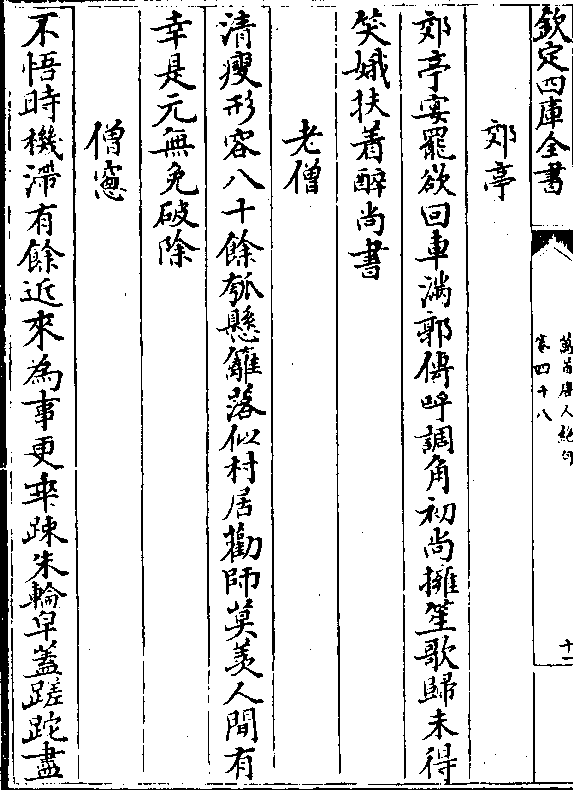 欽定四庫全書
萬首唐人絶句
卷四十八
十一
郊亭
郊亭宴罷欲回車滿郭傳呼調角初尚擁笙歌歸未得
笑娥扶着醉尚書
老僧
清瘦形容八十餘瓠懸籬落似村居勸師莫羡人間有
幸是元無免破除
僧窻
不悟時機滯有餘近來為事更乖踈朱輪皁蓋蹉跎盡